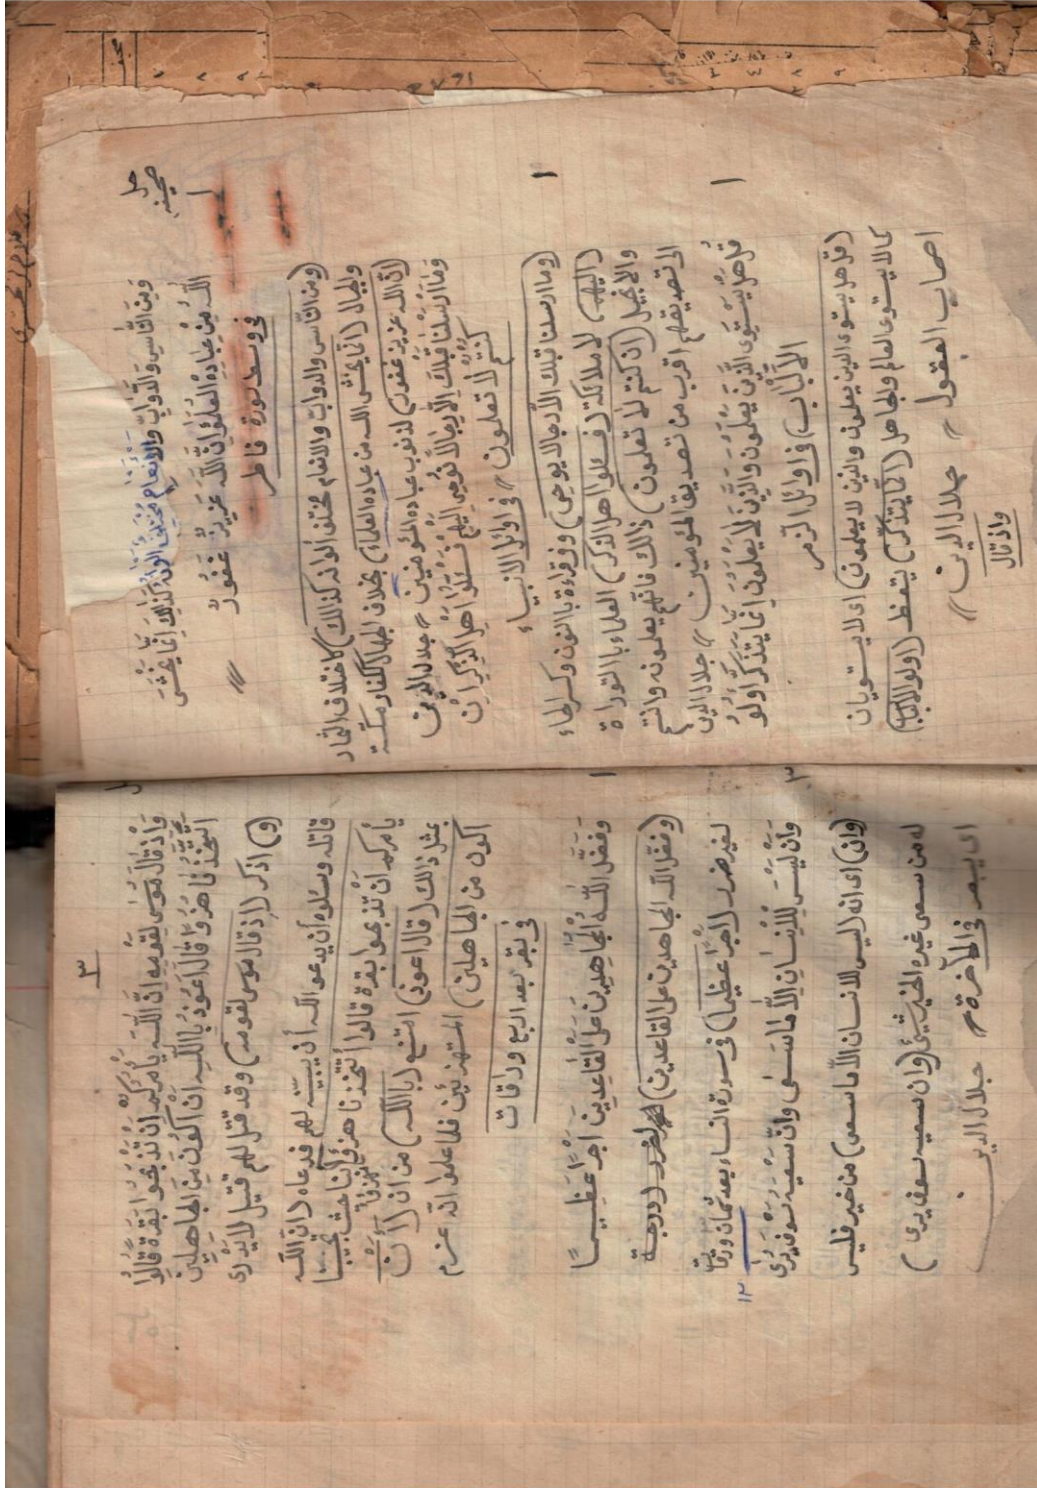 وَمِنَ النَّاسِ وَالدَّوَابِّ وَالْأَنْعَامِ مُخْتَلِفٌ أَلْوَانُهُ كَذٰلِكَ إِنَّمَا يَخْشَى
اللَّهَ مِنْ عِبَادِهِ الْعُلَمٰٓؤُا إِنَّ اللَّهَ عَزِيزٌ غَفُورٌ
فى وسط سورة فاطر
(ومن الناس والدواب والانعام مختلف ألوانه كذالك) كاختلاف الثمار
والجبال (انما يخشى الله من عباده العلماء) بخلاف الجهال ككفار مكة
(ان الله عزيز غفور) لذنوب عباده المؤمنين جلال الدين
وَمَا أَرْسَلْنَا قَبْلَكَ إِلَّا رِجَالًا نُوحِى إِلَيْهِمْ فَسْـَٔلُوا أَهْلَ الذِّكْرِ إِنْ
كُنْتُمْ لَا تَعْلَمُونَ فى اوائل الانبياء
(وما ارسلنا قبلك الا رجالا يوحى) وفى قراءة بالنون وكسر الحاء
(اليهم) لا ملائكة (فسئلوا اهل الذكر) العلماء بالتوراة
والانجيل (ان كنتم لا تعلمون) ذالك فانهم يعلمونه وانتم
الى تصديقهم اقرب من تصديق المؤمنين جلال الدين
قُلْ هَلْ يَسْتَوِى الَّذِينَ يَعْلَمُونَ وَالَّذِينَ لَا يَعْلَمُونَ إِنَّمَا يَتَذَكَّرُ أُولُو
الْأَلْبَابِ فى اوائل الزمر
(قل هل يستوى الذين يعلمون والذين لا يعلمون) اى لا يستويان
كما لا يستوى العالم والجاهل (انما يتذكر) يتعظ (اولو الالباب)
اصحاب العقول جلال الدين
واذ قال
٣
وَإِذْ قَالَ مُوسَى لِقَوْمِهِ إِنَّ اللَّهَ يَأْمُرُكُمْ أَنْ تَذْبَحُوا بَقَرَةً قَالُوا
أَتَتَّخِذُنَا هُزُوًا قَالَ أَعُوذُ بِاللَّهِ أَنْ أَكُونَ مِنَ الْجَاهِلِينَ
(و) اذكر (اذ قال موسى لقومه) وقد قتل لهم قتيل لا يدرى
قاتله وسئلوه أن يدعو الله أن يبينه لهم فدعاه (ان الله
يأمركم أن تذبحوا بقرة قالوا أتتخذنا هزوا)
بمثل ذالك (قال اعوذ) امتنع (بالله) من (ان
اكون من الجاهلين) المستهزئين فلما علموا انه عزم
فى بقر بعد الربع ورقات
وَفَضَّلَ اللَّهُ الْمُجَاهِدِينَ عَلَى الْقَاعِدِينَ أَجْرًا عَظِيمًا
(وفضل الله المجاهدين على القاعدين)
لغير ضرر (أجرا عظيما) فى سورة النساء بعد ثمان ورقات
١٢
وَأَنْ لَيْسَ لِلْإِنْسَانِ إِلَّا مَا سَعَى وَأَنَّ سَعْيَهُ سَوْفَ يُرَى
(وان) اى انه (ليس للانسان الا ما سعى) من خير فليس
له من سعى غيره الخير شيئ (وان سعيه سوف يرى)
اى يبصر فى الآخرة جلال الدين